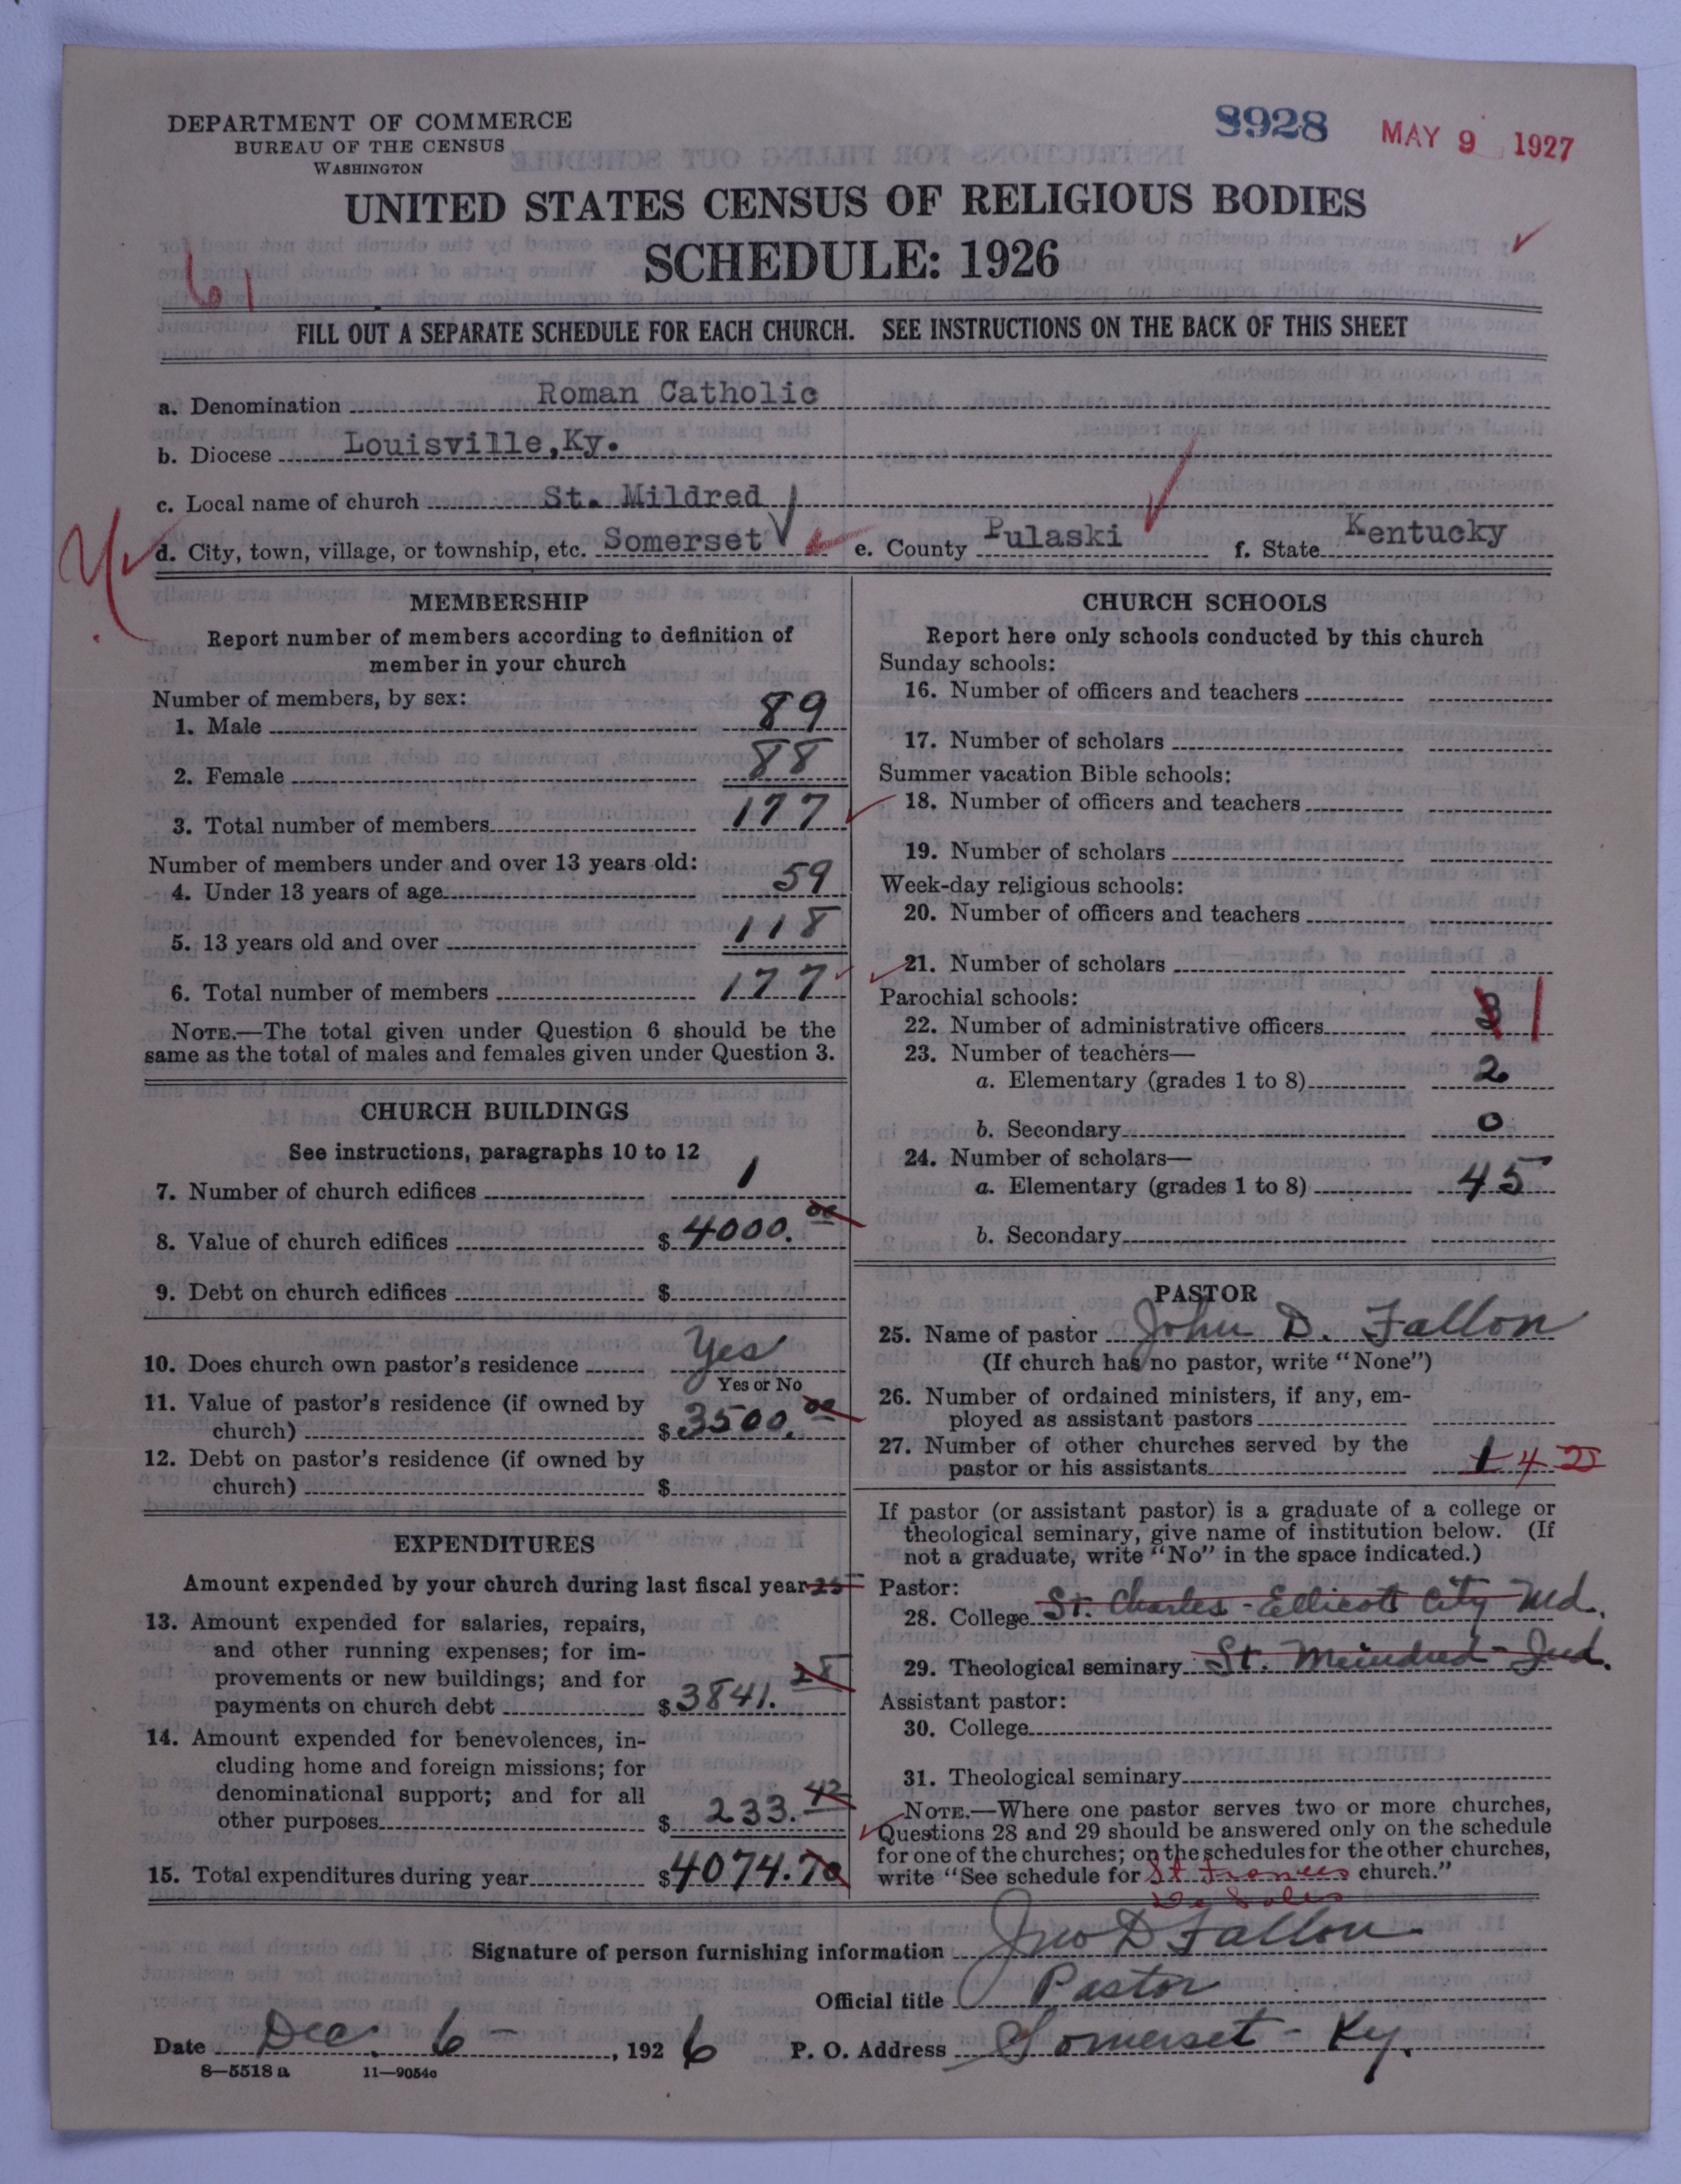 DEPARTMENT OF COMMERCE
BUREAU OF THE CENSUS
WASHINGTON
8928
MAY 9 1927
UNITED STATES CENSUS OF RELIGIOUS BODIES
SCHEDULE: 1926
61
FILL OUT A SEPARATE SCHEDULE FOR EACH CHURCH. SEE INSTRUCTIONS ON THE BACK OF THIS SHEET
a. Denomination Roman Catholic
b. Diocese Louisville,Ky.
c. Local name of church St. Mildred
d. City, town, village, or township, etc. Somerset e. County Pulaski f. State Kentucky
MEMBERSHIP
Report number of members according to definition of
member in your church
Number of members, by sex:
1. Male 89
2. Female 88
3. Total number of members 177
Number of members under and over 13 years old:
4. Under 13 years of age 59
5. 13 years old and over 118
6. Total number of members 177
NOTE.—The total given under Question 6 should be the
same as the total of males and females given under Question 3.
CHURCH BUILDINGS
See instructions, paragraphs 10 to 12
7. Number of church edifices 1
8. Value of church edifices $ 4000. 00
9. Debt on church edifices $
10. Does church own pastor's residence Yes
Yes or No
11. Value of pastor's residence (if owned by
church) $ 3500. 00
12. Debt on pastor's residence (if owned by
church) $
EXPENDITURES
Amount expended by your church during last fiscal year 25
13. Amount expended for salaries, repairs,
and other running expenses; for im-
provements or new buildings; and for
payments on church debt $ 3841. 28
14. Amount expended for benevolences, in-
cluding home and foreign missions; for
denominational support; and for all
other purposes $ 233. 42
15. Total expenditures during year $ 4074.70
CHURCH SCHOOLS
Report here only schools conducted by this church
Sunday schools:
16. Number of officers and teachers
17. Number of scholars
Summer vacation Bible schools:
18. Number of officers and teachers
19. Number of scholars
Week-day religious schools:
20. Number of officers and teachers
21. Number of scholars
Parochial schools:
22. Number of administrative officers 3 1
23. Number of teachers—
a. Elementary (grades 1 to 8) 2
b. Secondary 0
24. Number of scholars—
a. Elementary (grades 1 to 8) 45
b. Secondary
PASTOR
25. Name of pastor John D. Fallon
(If church has no pastor, write "None")
26. Number of ordained ministers, if any, em-
ployed as assistant pastors
27. Number of other churches served by the
pastor or his assistants 1 4
If pastor (or assistant pastor) is a graduate of a college or
theological seminary, give name of institution below. (If
not a graduate, write "No" in the space indicated.)
Pastor:
28. College St. Charles - Ellicott City Md.
29. Theological seminary St. Meindred - Ind.
Assistant pastor:
30. College
31. Theological seminary
NOTE.—Where one pastor serves two or more churches,
Questions 28 and 29 should be answered only on the schedule
for one of the churches; on the schedules for the other churches,
write "See schedule for St Frances church."
De Sales
Signature of person furnishing information Jno D Fallon
Official title Pastor
Date Dec. 6 , 1926 P. O. Address Somerset - Ky.
8—5518 a 11—9054c